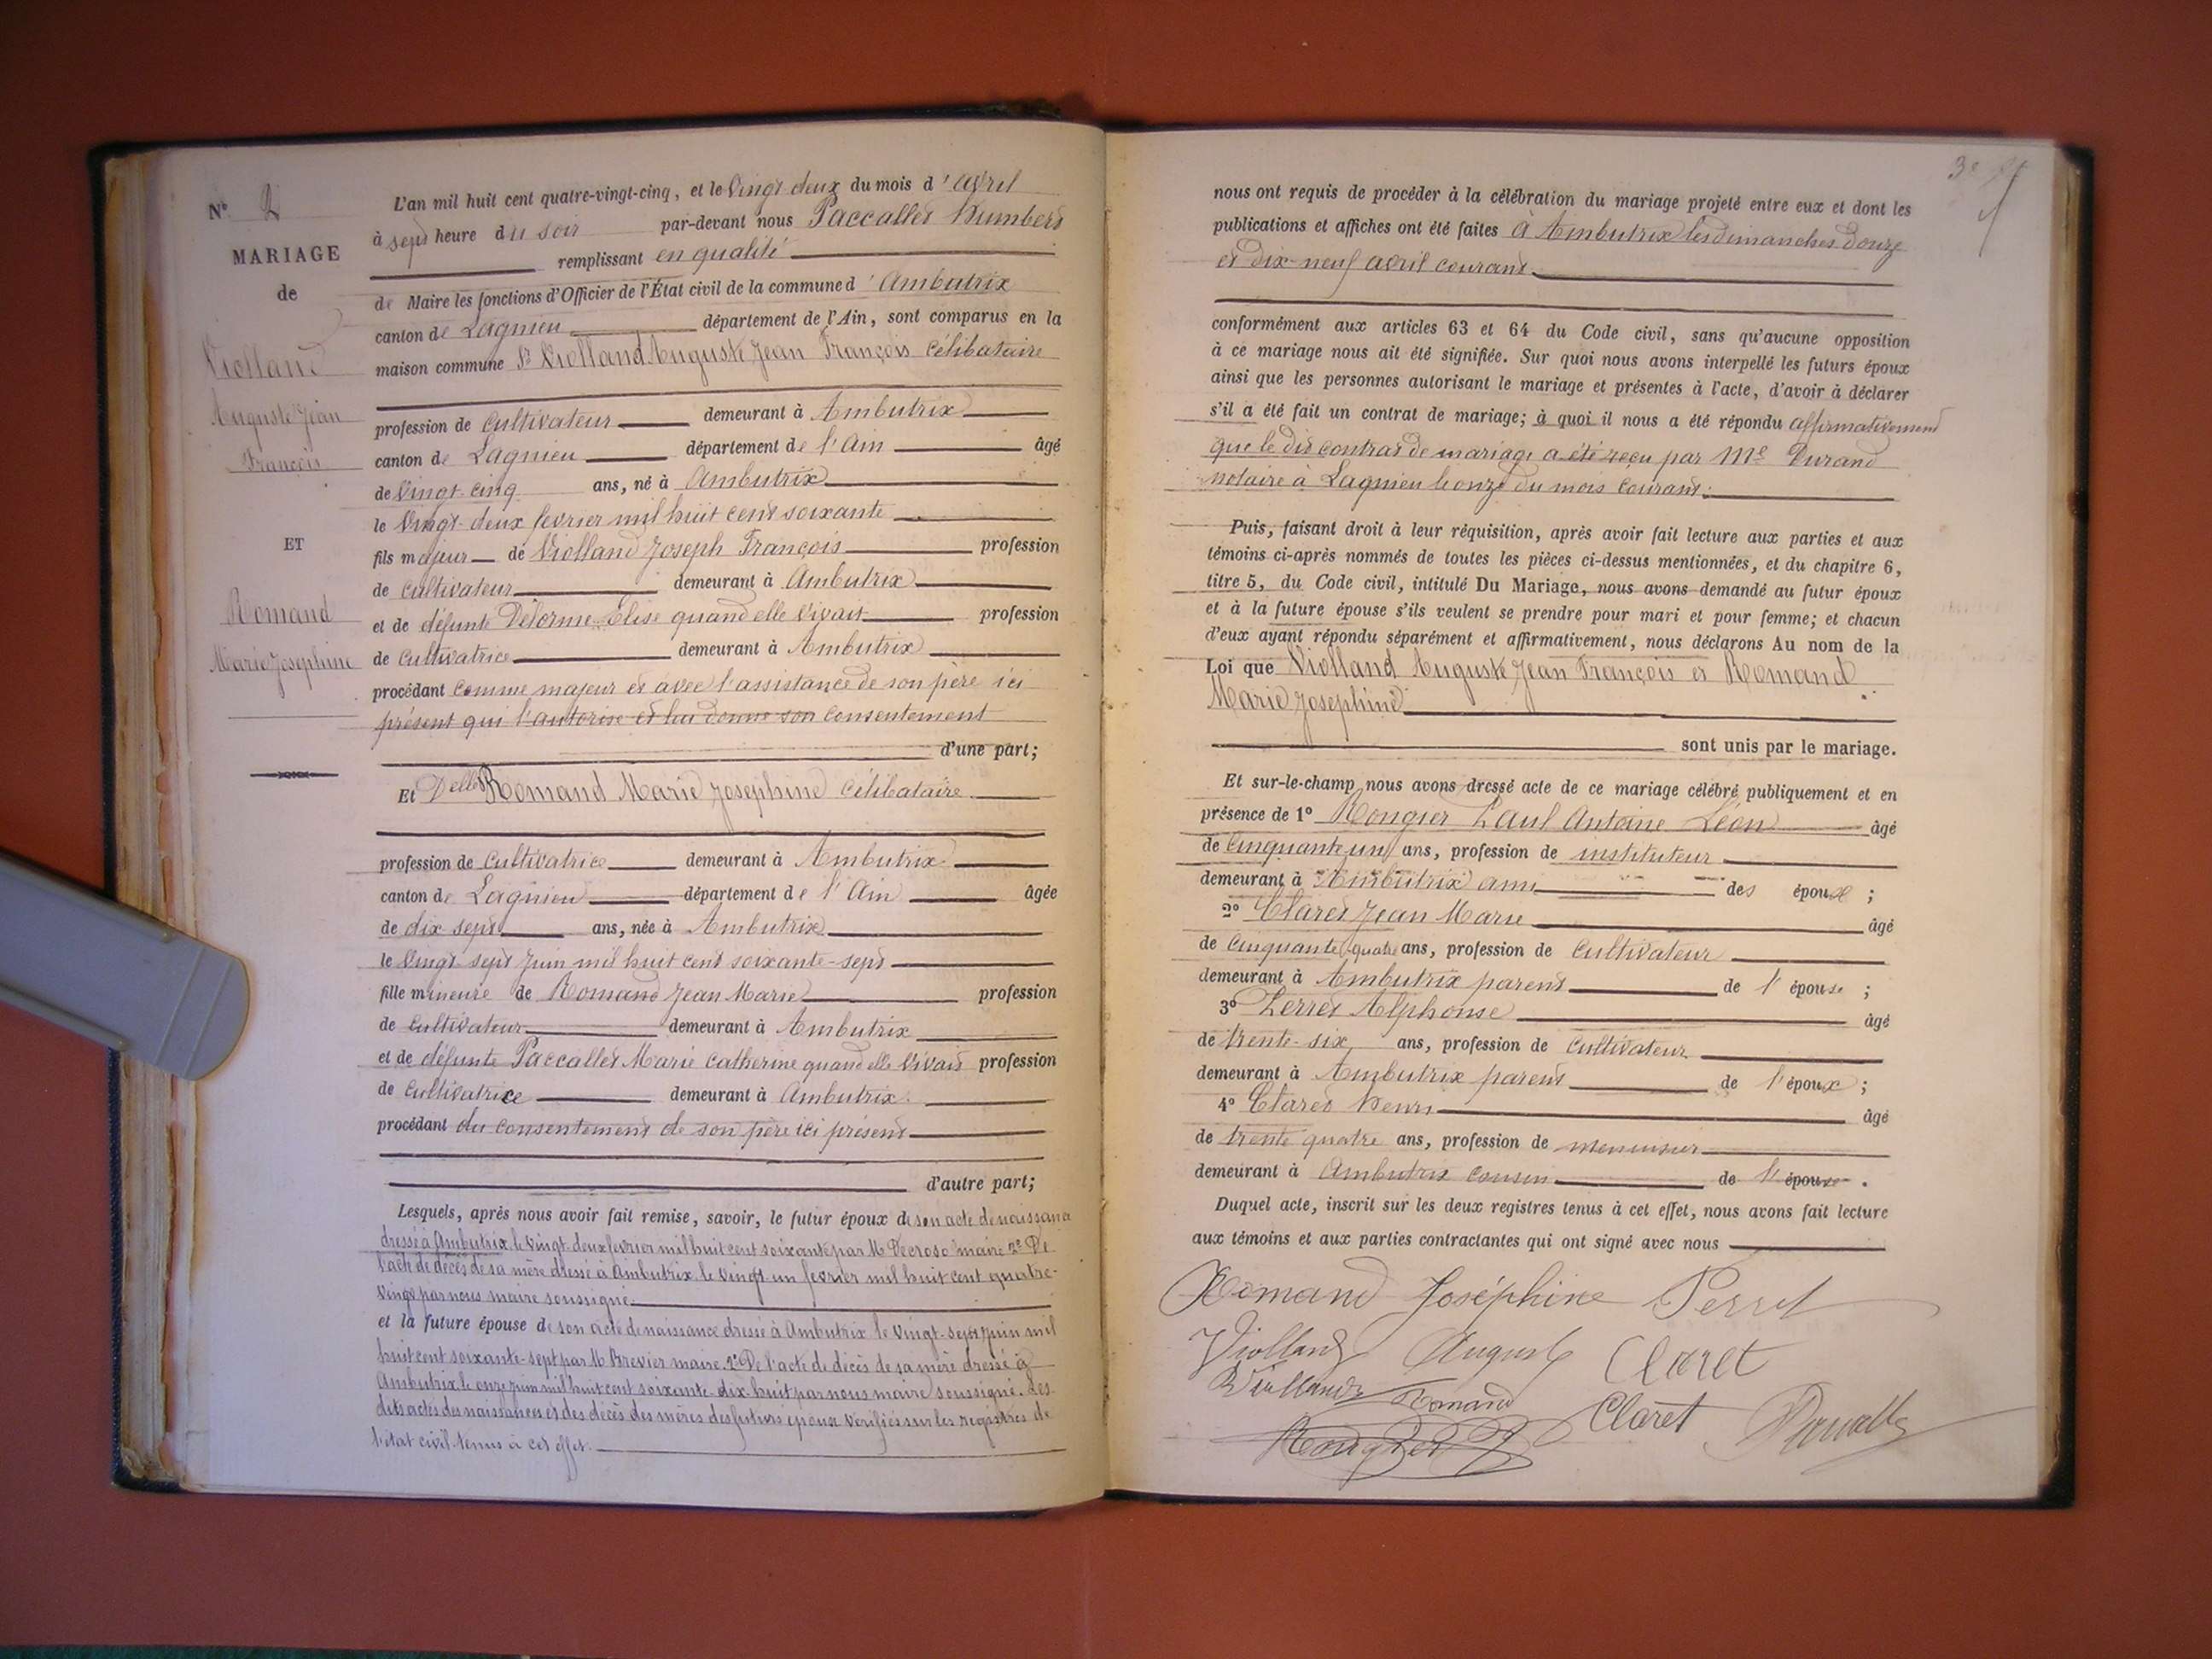 N° 2
MARIAGE
de
Violland
Auguste Jean
François
ET
Romand
Marie Josephine
L'an mil huit cent quatre-vingt-cinq, et le vingt deux du mois d'avril
à sept heure du soir par-devant nous Paccallet Humbert
remplissant en qualité
de Maire les fonctions d'Officier de l'État civil de la commune d'Ambutrix
canton de Lagnieu département de l'Ain, sont comparus en la
maison commune Sr Violland Auguste Jean François célibataire
profession de cultivateur demeurant à Ambutrix
canton de Lagnieu département de l'Ain âgé
de vingt-cinq ans, né à Ambutrix
le vingt-deux fevrier mil huit cent soixante
fils majeur de Violland Joseph François profession
de cultivateur demeurant à Ambutrix
et de défunte Delorme Élise quand elle vivait profession
de cultivatrice demeurant à Ambutrix
procédant comme majeur et avec l'assistance de son père ici
présent qui l'autorise et lui donne son consentement
d'une part;
Et Delle Romand Marie Josephine célibataire
profession de cultivatrice demeurant à Ambutrix
canton de Lagnieu département de l'Ain âgée
de dix sept ans, née à Ambutrix
le vingt-sept juin mil huit cent soixante-sept
fille mineure de Romand Jean Marie profession
de cultivateur demeurant à Ambutrix
et de défunte Paccallet Marie Catherine quand elle vivait profession
de cultivatrice demeurant à Ambutrix
procédant du consentement de son père ici présent
d'autre part;
Lesquels, après nous avoir fait remise, savoir, le futur époux de son acte de naissance
dressé à Ambutrix le vingt-deux fevrier mil huit cent soixante par M. Decroso maire 2° De
l'acte de décès de sa mère dressé à Ambutrix le vingt un fevrier mil huit cent quatre-
vingt par nous maire soussigné.
et la future épouse de son acte de naissance dressé à Ambutrix le vingt-sept juin mil
huit cent soixante-sept par M. Brevier maire. 2° De l'acte de décès de sa mère dressé à
Ambutrix le onze juin mil huit cent soixante-dix-huit par nous maire soussigné. Les
dits actes des naissances et des décès des mères des futurs époux vérifiés sur les registres de
l'état civil tenus à cet effet.
nous ont requis de procéder à la célébration du mariage projeté entre eux et dont les
publications et affiches ont été faites à Ambutrix les dimanches douze
et dix-neuf avril courant
conformément aux articles 63 et 64 du Code civil, sans qu'aucune opposition
à ce mariage nous ait été signifiée. Sur quoi nous avons interpellé les futurs époux
ainsi que les personnes autorisant le mariage et présentes à l'acte, d'avoir à déclarer
s'il a été fait un contrat de mariage; à quoi il nous a été répondu affirmativement
que le dit contrat de mariage a été reçu par Me Durand
notaire à Lagnieu le onze du mois courant.
Puis, faisant droit à leur réquisition, après avoir fait lecture aux parties et aux
témoins ci-après nommés de toutes les pièces ci-dessus mentionnées, et du chapitre 6,
titre 5, du Code civil, intitulé Du Mariage, nous avons demandé au futur époux
et à la future épouse s'ils veulent se prendre pour mari et pour femme; et chacun
d'eux ayant répondu séparément et affirmativement, nous déclarons Au nom de la
Loi que Violland Auguste Jean François et Romand
Marie Josephine
sont unis par le mariage.
Et sur-le-champ nous avons dressé acte de ce mariage célébré publiquement et en
présence de 1° Rougier Paul Antoine Léon âgé
de cinquante un ans, profession de instituteur
demeurant à Ambutrix ami des époux ;
2° Claret Jean Marie âgé
de cinquante quatre ans, profession de cultivateur
demeurant à Ambutrix parent de l'épouse ;
3° Perret Alphonse âgé
de trente-six ans, profession de cultivateur
demeurant à Ambutrix parent de l'époux ;
4° Claret Henri âgé
de trente quatre ans, profession de menuisier
demeurant à Ambutrix cousin de l'épouse .
Duquel acte, inscrit sur les deux registres tenus à cet effet, nous avons fait lecture
aux témoins et aux parties contractantes qui ont signé avec nous
Romand Joséphine Perret
Violland Auguste Claret
Violland Romand
Rougier Claret